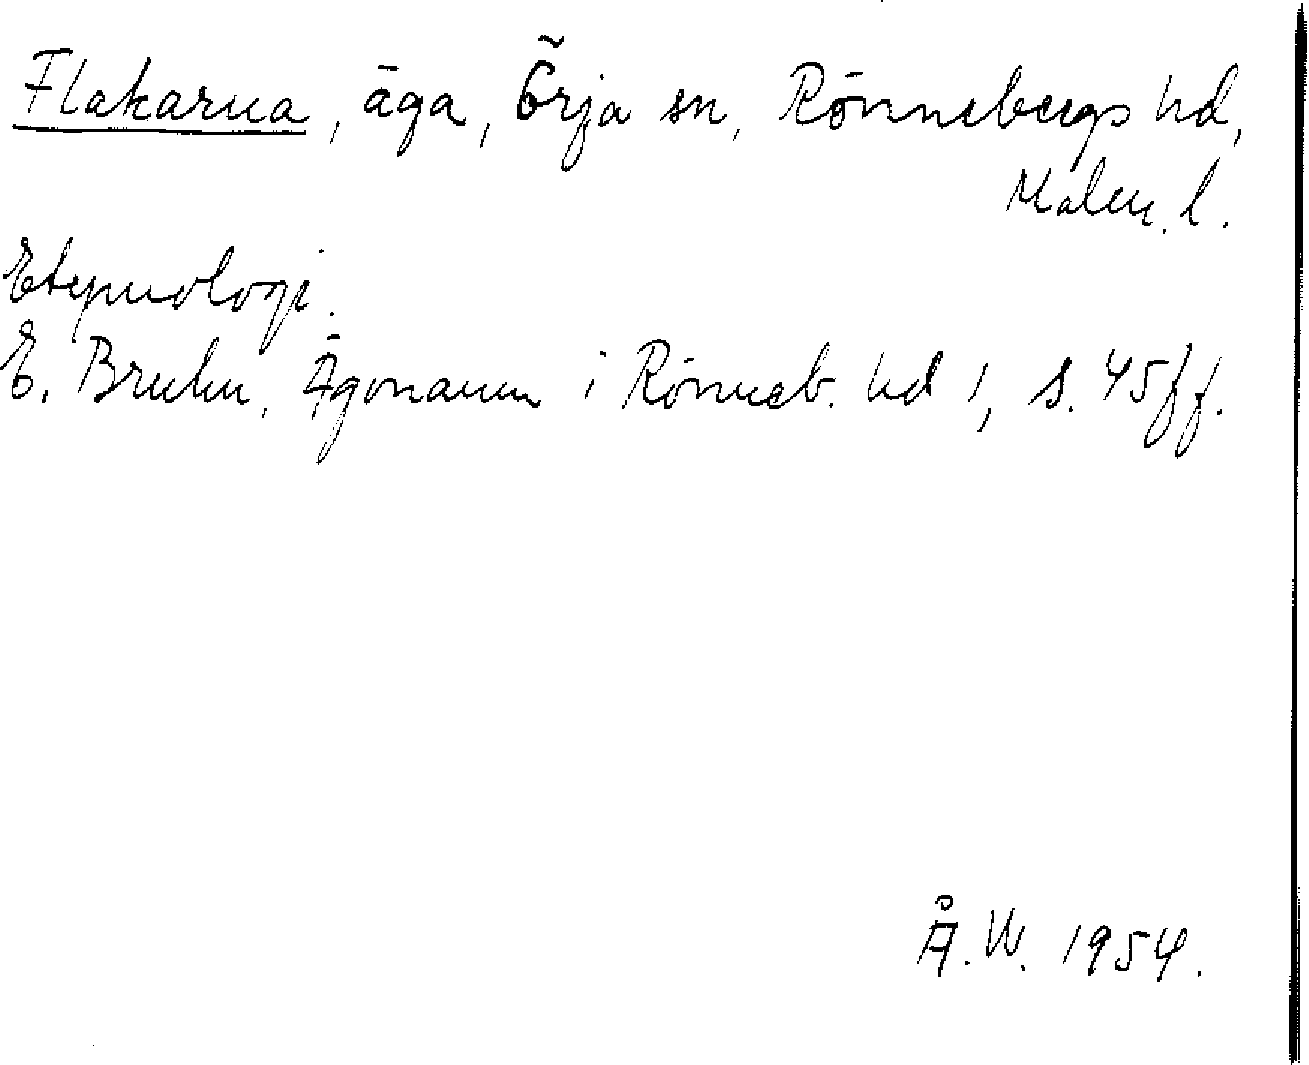 Flakarna, äga, Örja sn, Rönnebergs hd,
Malm. l.
Etymologi.
E. Bruhn, Ägonamn i Rönneb. hd 1, s. 45ff.
Å.W. 1954.